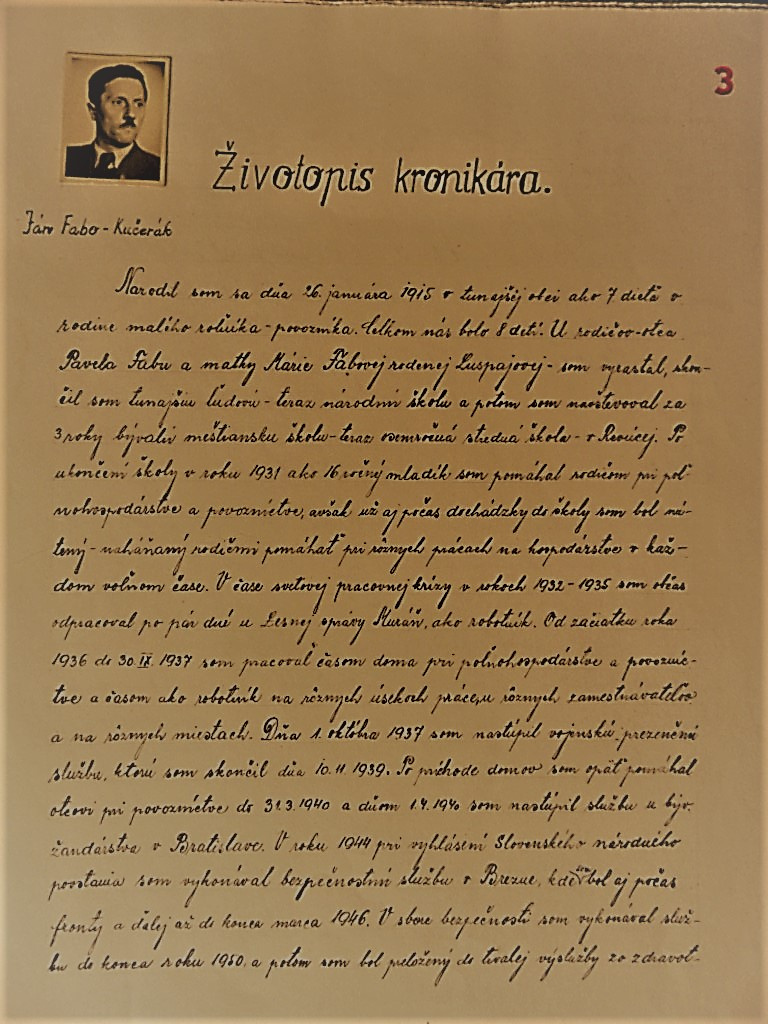 3
Životopis kronikára.
Ján Fabo-Kučerák
Narodil som sa dňa 26. januára 1915 v tunajšej obci ako 7 dieťa v
rodine malého roľníka-povozníka. Celkom nás bolo 8 detí. U rodičov-otca
Pavela Fabu a matky Márie Fábovej rodenej Luspajovej- som vyrastal, skon-
čil som tunajšiu ľudovú- teraz národnú školu a potom som navštevoval za
3 roky bývalú meštiansku školu-teraz osemročná stredná škola- v Revúcej. Po
ukončení školy v roku 1931 ako 16 ročný mladík som pomáhal rodičom pri poľ-
nohospodárstve a povozníctve, avšak už aj počas dochádzky do školy som bol nú-
tený- naháňaný rodičmi pomáhať pri rôznych prácach na hospodárstve v kaž-
dom voľnom čase. V čase svetovej pracovnej krízy v rokoch 1932-1935 som občas
odpracoval po pár dní u Lesnej správy Muráň, ako robotník. Od začiatku roka
1936 do 30.IX.1937 som pracoval časom doma pri poľnohospodárstve a povozníc-
tve a časom ako robotník na rôznych úsekoch práce, u rôznych zamestnávateľov
a na rôznych miestach. Dňa 1. októbra 1937 som nastúpil vojenskú prezenčnú
službu, ktorú som skončil dňa 10.11.1939. Po príchode domov som opäť pomáhal
otcovi pri povozníctve do 31.3.1940 a dňom 1.4.1940 som nastúpil službu u býv.
žandárstva v Bratislave. V roku 1944 pri vyhlásení Slovenského národného
povstania som vykonával bezpečnostnú službu v Brezne, kde som bol aj počas
fronty a ďalej až do konca marca 1946. V sbore bezpečnosti som vykonával služ-
bu do konca roku 1950. a potom som bol preložený do trvalej výslužby zo zdravot-